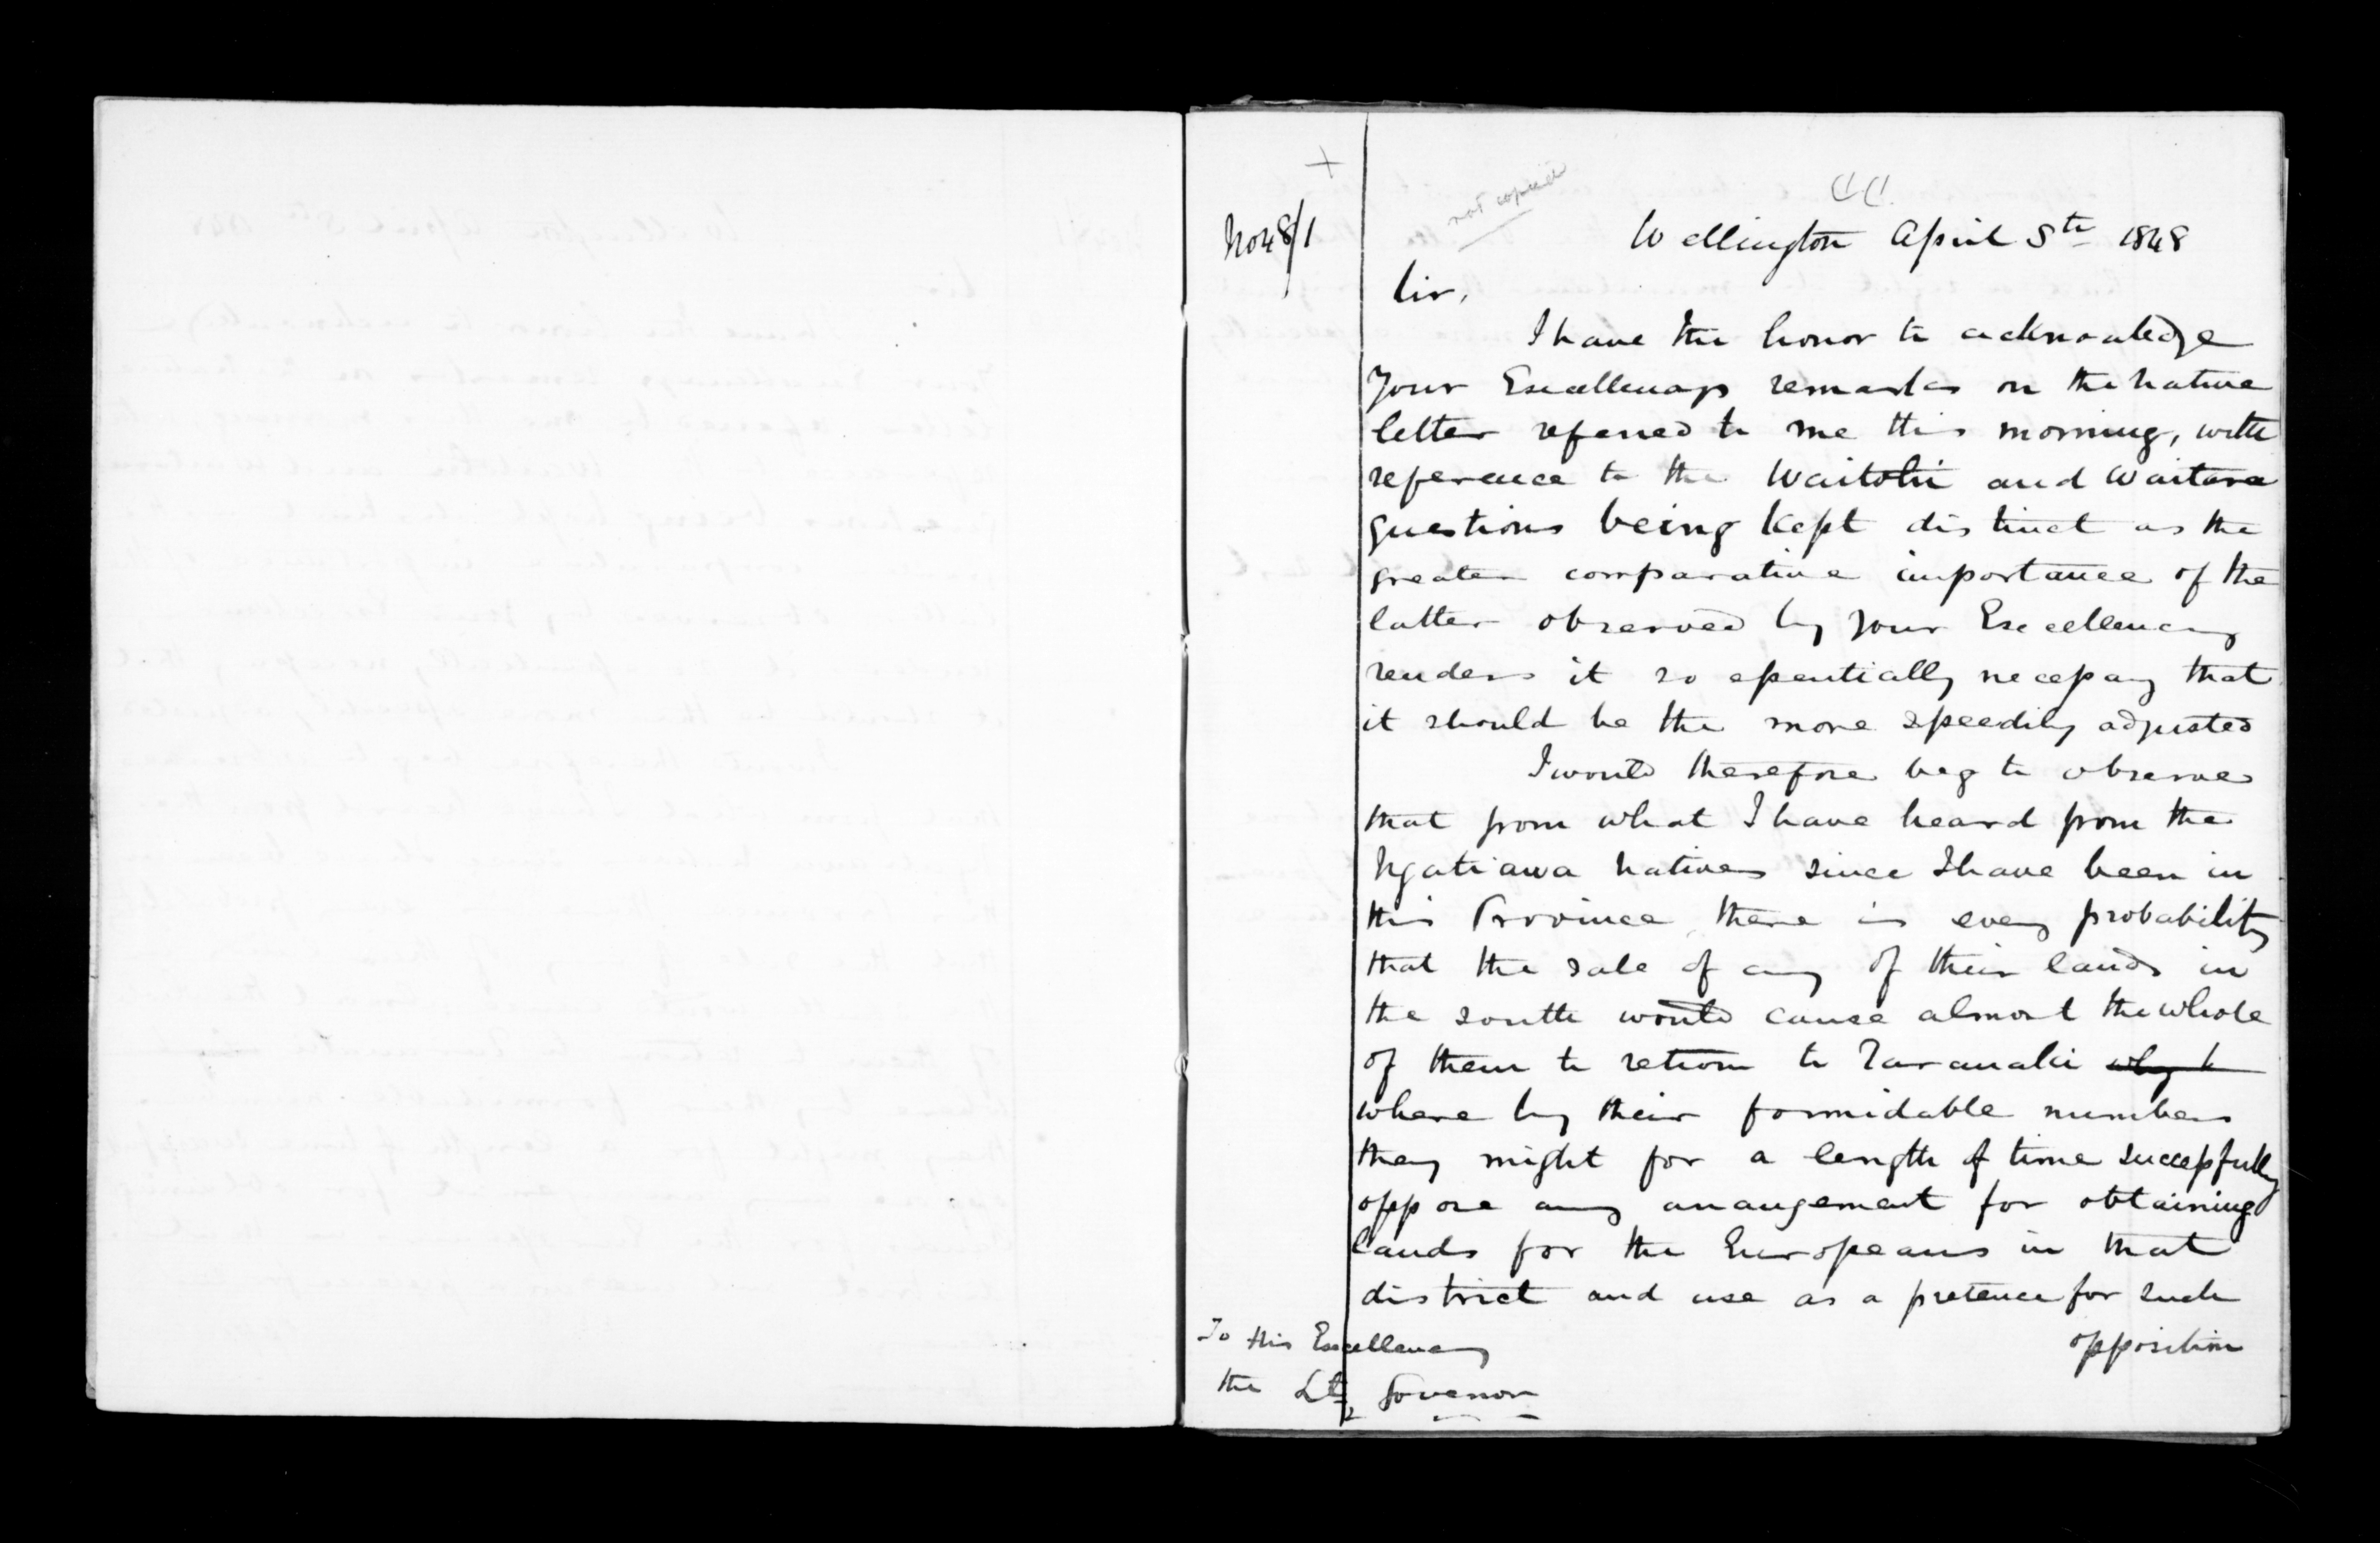 +
not copied
No 48/1
Wellington April 5th 1848
Sir,
I have the honor to acknowledge
Your Excellencys remarks on the native
letter referred to me this morning, with
reference to the Waitohi and Waitara
questions being kept distinct as the
greater comparative importance of the
latter observed by your Excellency
renders it so essentially necessary that
it should be the more speedily adjusted
I would therefore beg to observe
that from what I have heard from the
Ngatiawa natives since I have been in
this Province there is every probability
that the sale of any of their lands in
the south would cause almost the whole
of them to return to Taranaki
where by their formidable numbers
they might for a length of time successfully
oppose any arrangement for obtaining
lands for the Europeans in that
district and use as a pretence for such
opposition
To His Excellency
the Lt. Governor